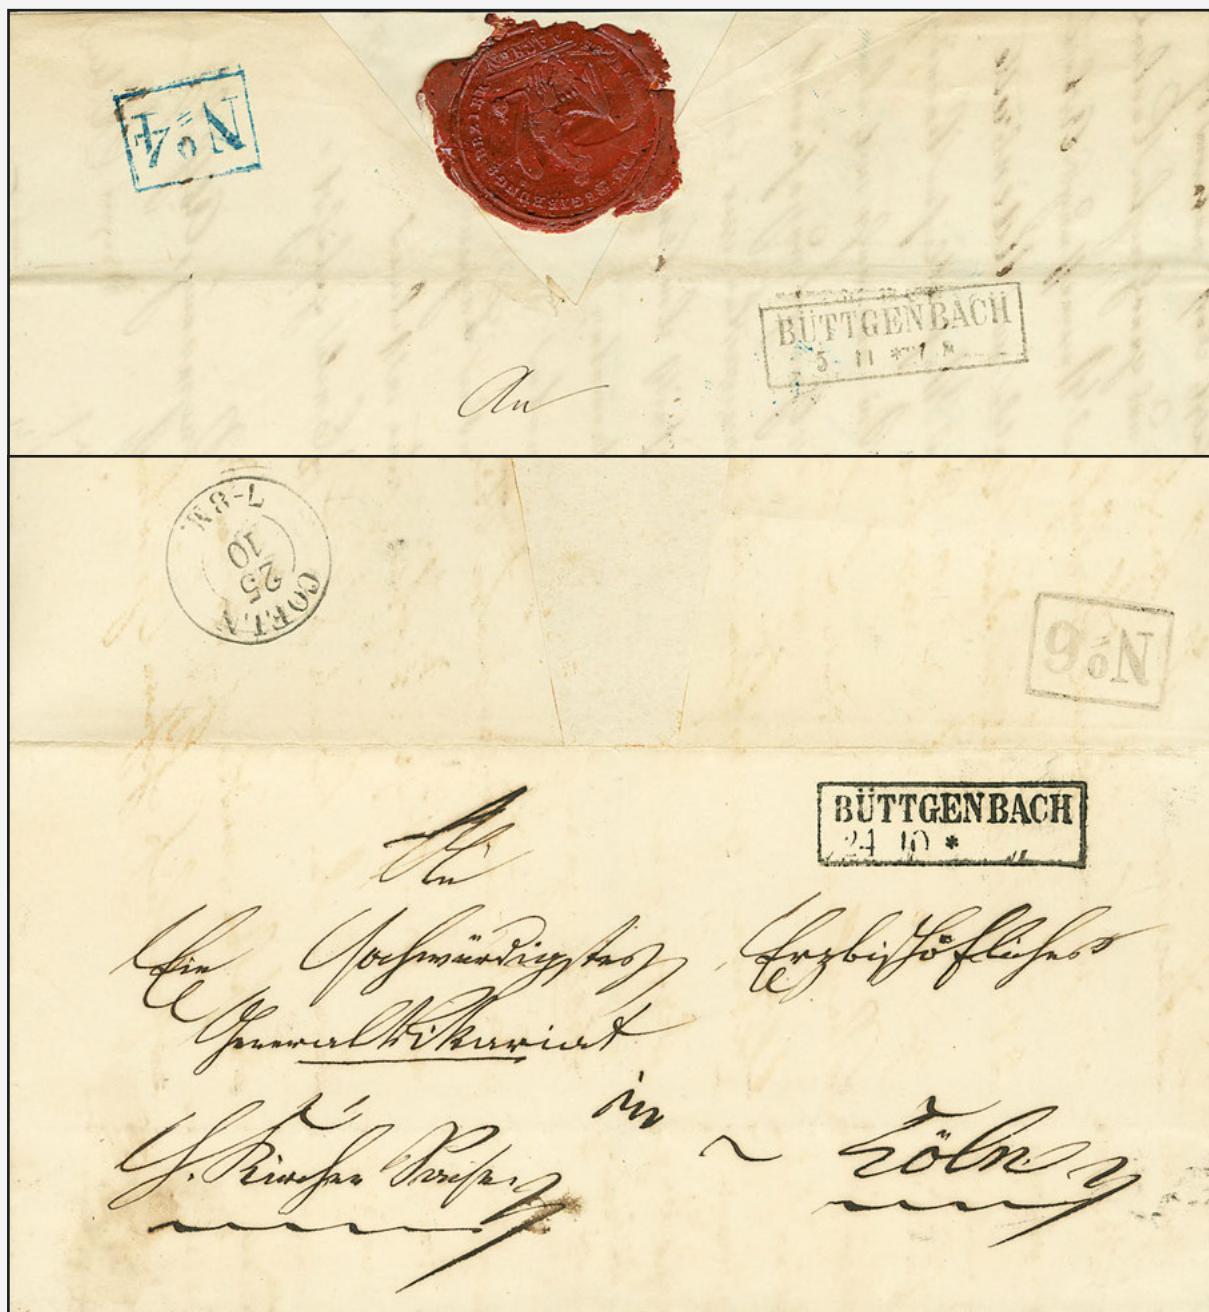 No 4
BÜTTGENBACH
5 11 *
An
7-8N.
10
25
COELN
No 6
BÜTTGENBACH
24 10 *
An
Ein Hochwürdigstes Erzbischöfliches
General Vikariat
in
H. Kirchen Sachen
Köln